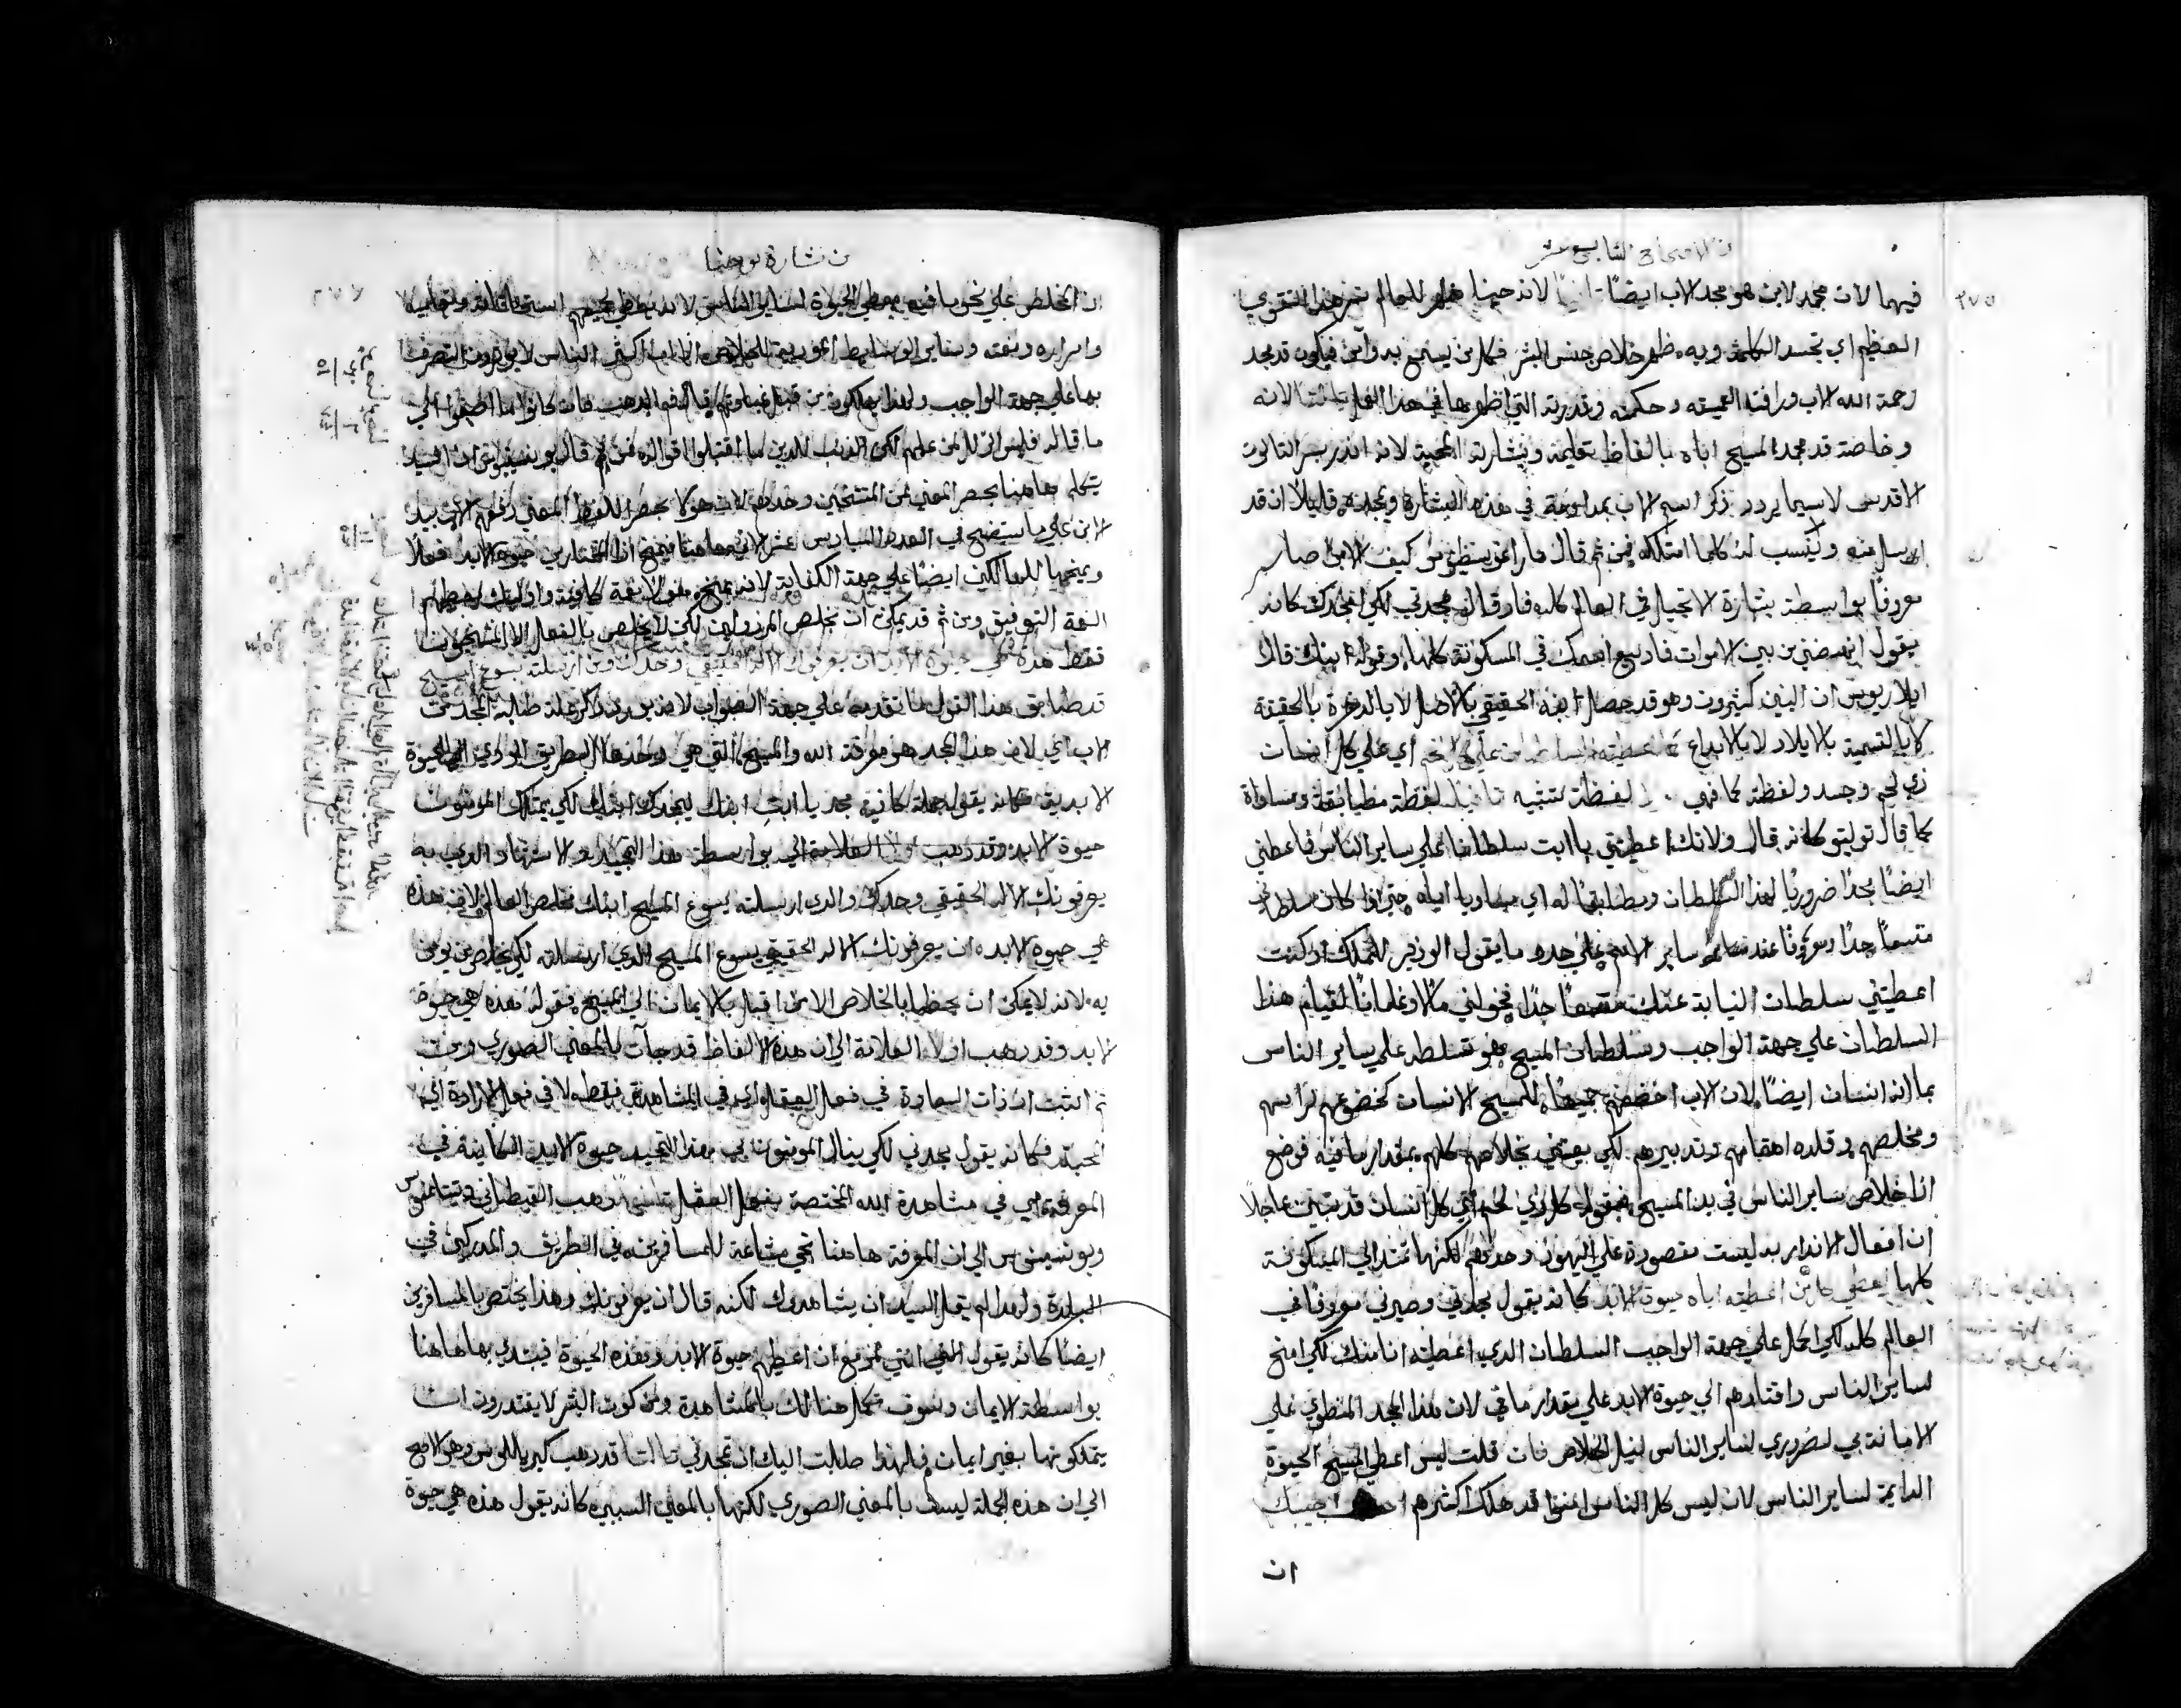 الاصحاح السابع عشر
٢٧٥
فيها لان مجد الابن هو مجد الاب ايضًا لانه حينما ظهر للعالم هذا التقوي
العظيم اي تجسد الكلمة وبه ظهر خلاص جنس البشر فكل من يسمع به وآمن فيكون قد مجد
رحمة الله الاب ورافته العميقه وحكمته وقدرته التي اظهرها في هذا الفعل ثالثا لانه
وخاصة قد مجد المسيح اباه بالفاظ تعليمه وبشارته المحيية لانه انذر بسر الثالوث
الاقدس لاسيما يردد ذكر اسم الاب بمداومة في هذه البشارة ويمجده قايلًا ان قد
ارسل منه وينسب له كلما امتلكه فمن ثم قال ماراغوسطينوس كيف الابن صار
معروفًا بواسطة بشارة الانجيل في العالم كله فاذ قال مجدني لكي امجدك كانه
يقول انهضني من بين الاموات فاذيع اسمك في المسكونة كلها وقوله ابنك قال
ايلاريوس ان البنين كثيرون وهو قد حصل ابنه الحقيقي بالاصل لا بالذخرة بالحقيقة
لا بالتسمية بالايلاد لا بالابداع كما اعطيته السلطان على كل لحم اي علي كل انسان
ذي لحم وجسد ولفظة كما فهي لفظة تشبيه لفظة مطابقة ومساواة
كما قال توليتو كانه قال ولانك اعطيتني يا ابت سلطانا علي ساير الناس فاعطني
ايضًا مجدًا ضروريًا لهذا السلطان ومطابقًا له اي مساويا اياه حتي اذا كان سلطاني
متسعًا جدًا ومعروفًا عند ساير الامم علي حد ما يقول الوزير للملك اذ كنت
اعطيتني سلطان النيابة عنك متسعًا جدًا فخولني مالًا وغلمانًا لقيام هذا
السلطان علي جهة الواجب وسلطان المسيح هو تسلطه علي ساير الناس
بما انه انسان ايضًا لان الاب اخضعهم جميعًا للمسيح الانسان كخضوعهم لراسهم
ومخلصهم وقلده اهتمامهم وتدبيرهم لكي يعتني بخلاصهم كلهم بمقدار ما فيه فوضع
اذا خلاص ساير الناس في يد المسيح فبقوله كل ذي لحم اي كل انسان قد تبين عاجلًا
ان افعال الانذار به ليست مقصورة علي اليهود وحدهم لكنها تمتد الي المسكونة
كلها ليعطي كل من اعطيته اياه حيوة الابد كانه يقول مجدني وصيرني معروفًا في
العالم كله لكي اكمل علي جهة الواجب السلطان الذي اعطيته انا منك لكي امنح
لساير الناس واقتادهم الي حيوة الابد علي مقدار ما في لان هذا المجد المنطوي علي
الامانة بي لضروري لساير الناس لنيل الخلاص فان قلت ليس اعطي المسيح الحيوة
الدايمة لساير الناس لان ليس كل الناس امنوا قد هلك اكثرهم اجيبك
ان
من بشارة يوحنا
ان المخلص علي نحو ما فيه يعطي الحيوة لساير الناس لانه يعطي جميعهم استحقاقاته وتعاليمه
واسراره ونعمه وساير الوسايط الموردية للخلاص الا ان اكثر الناس لا يريدون التصرف
بها علي جهة الواجب ولهذا يهلكون من قبل غباوتهم قال فم الذهب فان كانوا ما اصغوا الي
ما قاله فليس الزلل من علم لكن الذنب للذين ما اقتبلوا اقواله فمن ثم قال يونسنيوس ان السيد
يتكلم هاهنا بحصر المعني عن المنتخبين وحدهم لان هولا بحصر اللفظ والمعني دفعهم الاب بيد
الابن علي ما سيتضح في العدد السادس عشر لانه هاهنا يمنح اذا المختارين حيوة الابد فعلًا
ويمنحها للهالكين ايضًا علي جهة الكفاية لانه يمنح هولا نعمة كافية واوليك يعطيهم
النعمة التوفيق ومن ثم قد يمكن ان يخلص المرذولين لكن لا يخلص بالفعل الا المنتخبون
فقط هذه هي حيوة الابد ان يعرفوك الاله الحقيقي وحدك ومن ارسلته يسوع المسيح
قد طابق هذا القول ما تقدمه علي جهة الصواب لانه يورد ذكر علة طلبه المجد من
الاب اي لان هذا المجد هو معرفة الله والمسيح التي هي وحدها الطريق المودي الي الحيوة
الابدية فكانه يقول جملة كافية مجد يا ابتِ ابنك ليمجدك ابنك لكي يمتلك المومنون
حيوة الابد وقد ذهب اولًا العلامة الي بواسطة هذا التمجيد والاشتهار الذي به
يعرفونك الاله الحقيقي وحدك والذي ارسلته يسوع المسيح ابنك مخلص العالم لان هذه
هي حيوة الابد ان يعرفونك الاله الحقيقي يسوع المسيح الذي ارسلته لكي يخلص من يومن
به لانه لا يمكن ان يحظا بالخلاص الا من اقبل بالايمان الي المسيح فقوله هذه هي حيوة
الابد وقد ذهب اولا العلامة الي ان هذه الالفاظ قد جآت بالمعني الصوري ومن
ثم اثبت ان ذات السعادة في فعل العقل اي في المشاهدة فقط لا في فعل الارادة اي
المحبة فكانه يقول مجدني لكي ينال المومنون بي بهذا التمجيد حيوة الابد الكاينة في
المعرفة اي في مشاهدة الله المختصة بفعل العقل ثانيًا ذهب القيطاني
ويونسينوس الي ان المعرفة هاهنا هي مشاعة للمسافرين في الطريق والمدركين في
البلدة ولهذا لم يقل السيد ان يشاهدوك لكنه قال ان يعرفونك وهذا يختص بالمسافرين
ايضًا كانه يقول انني مزمع ان اعطيهم حيوة الابد وهذه الحيوة فيبتدي بها هاهنا
بواسطة الايمان وسوف تكمل هنالك بالمشاهدة ومن كون البشر لا يقتدرون ان
يمتلكونها بغير ايمان فلهذا طلبت اليك ان تمجدني ثالثًا قد ذهب كيريللوس وهو الاصح
الي ان هذه الجملة ليست بالمعني الصوري لكنها بالمعني السببي كانه يقول هذه هي حيوة